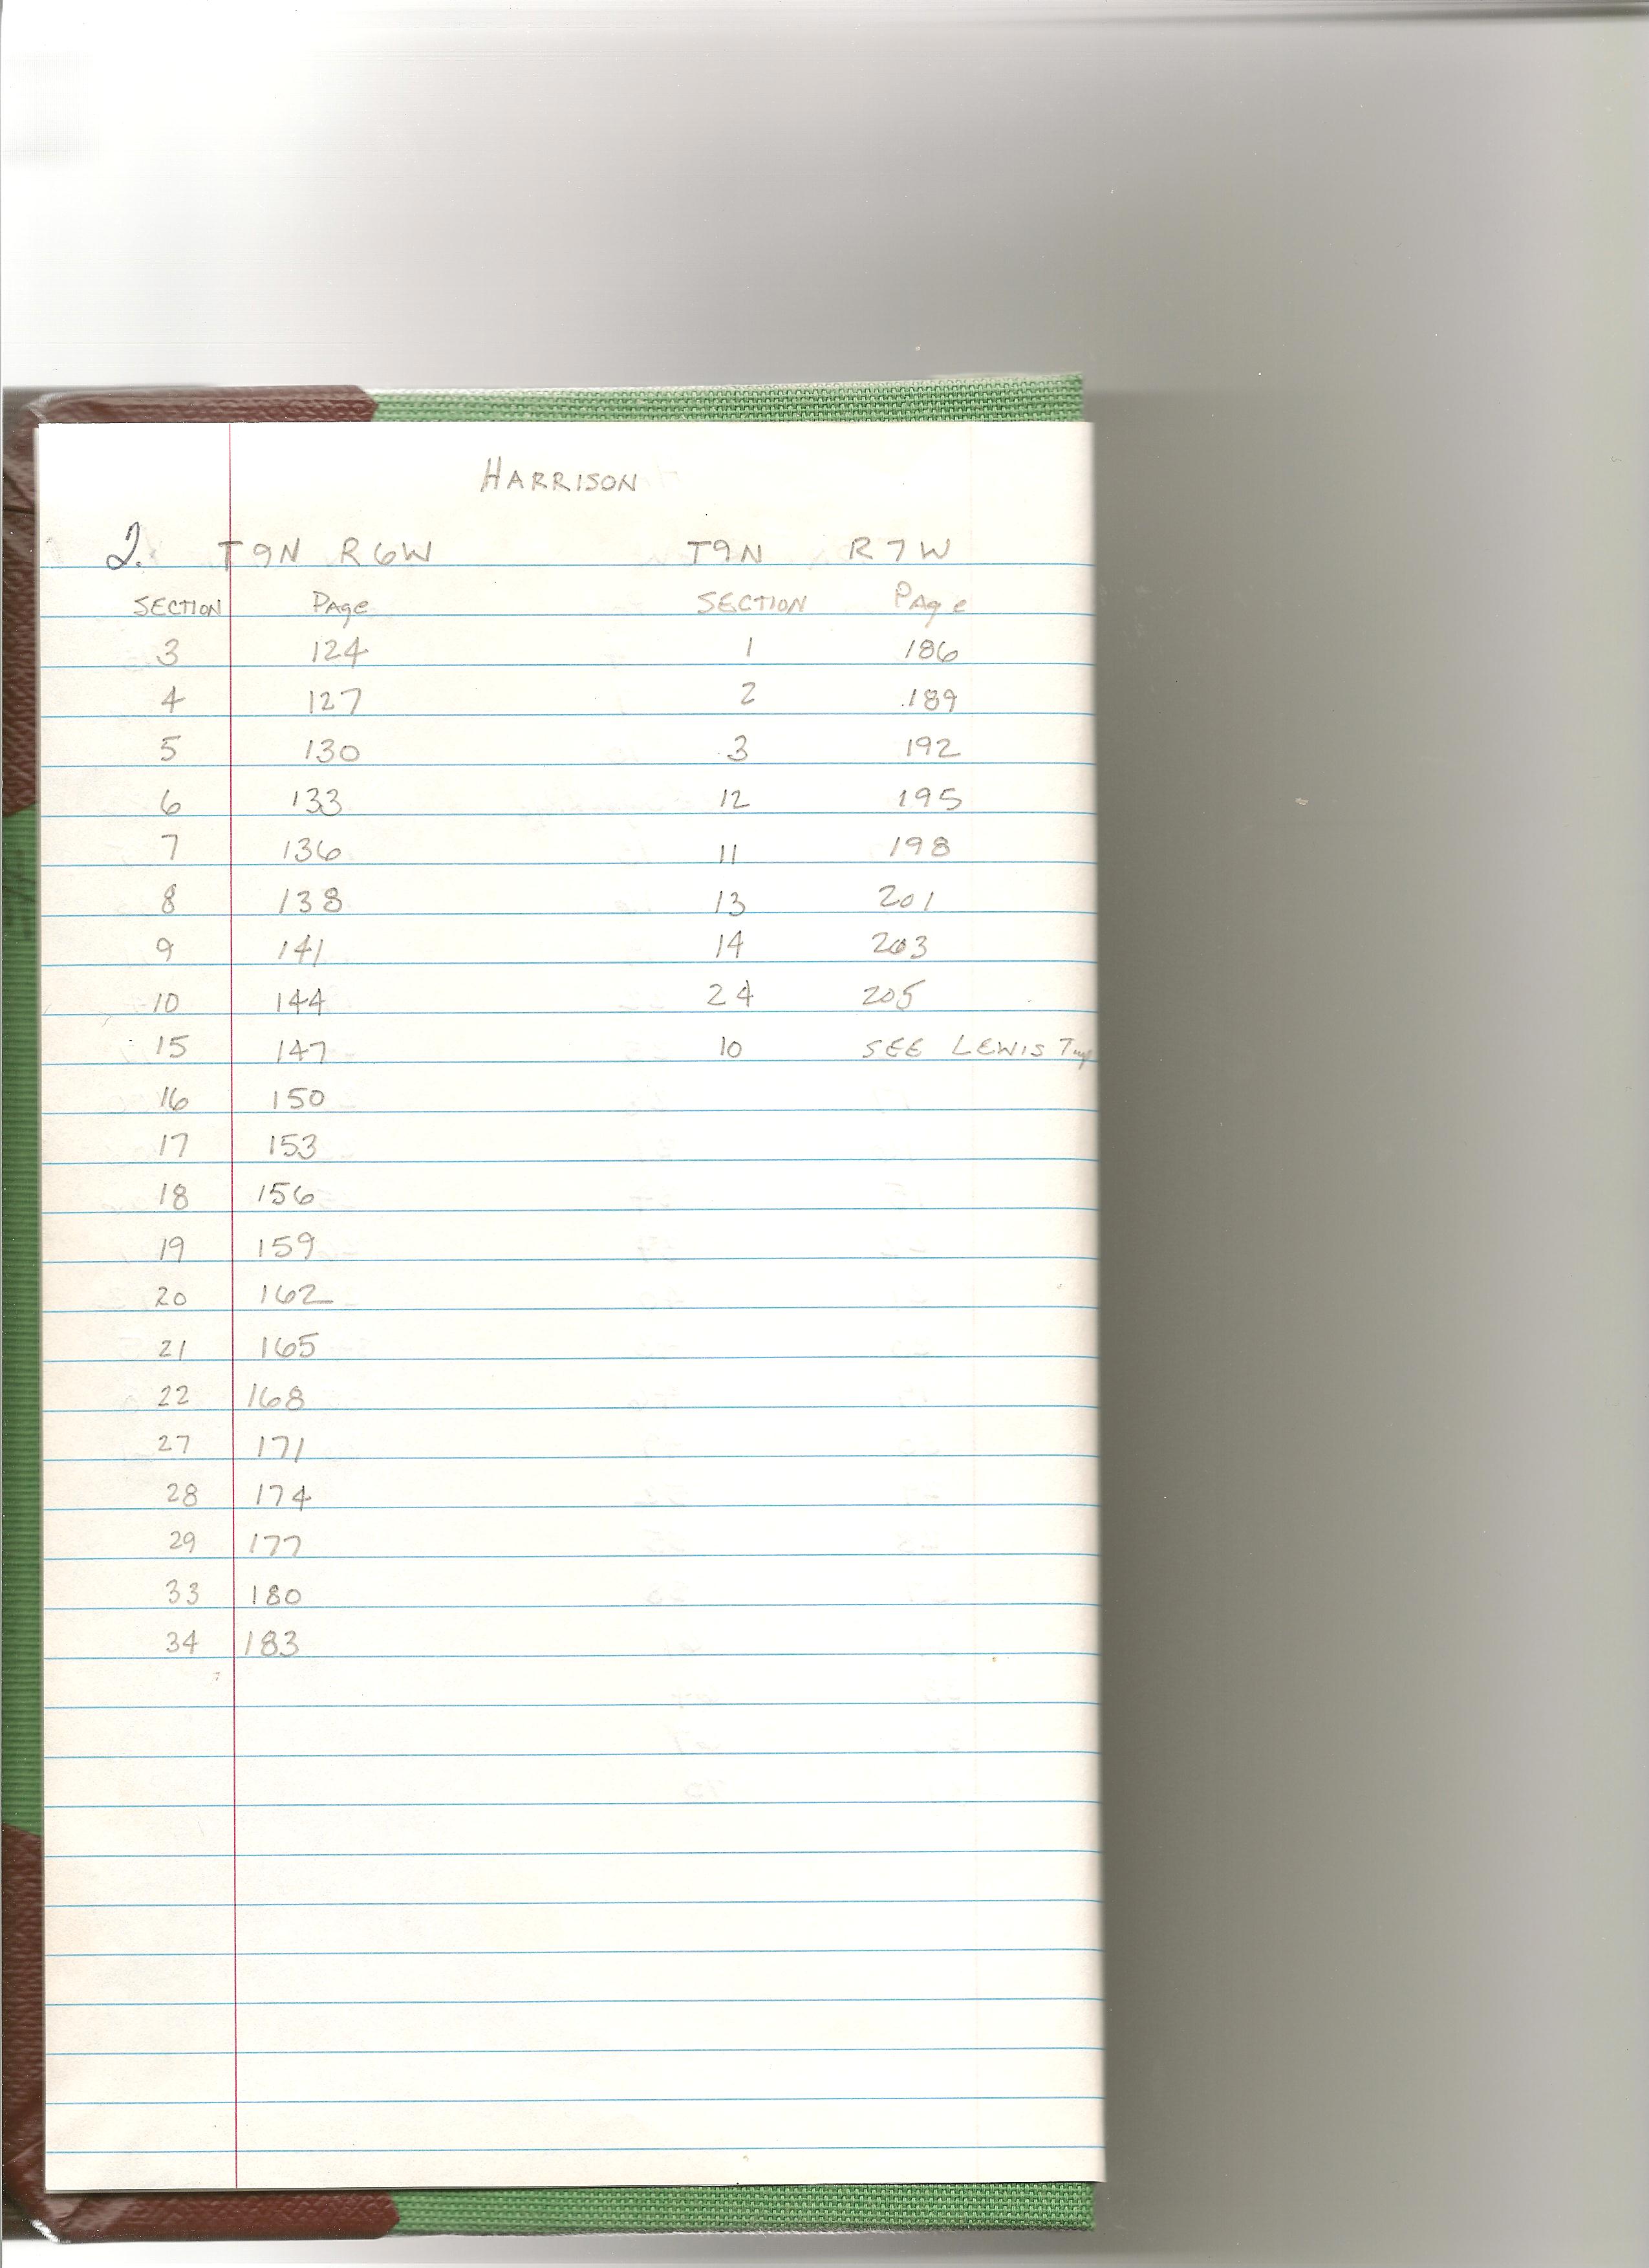 HARRISON
2. T9N R6W T9N R7W
SECTION Page SECTION PAge
3 124 1 186
4 127 2 189
5 130 3 192
6 133 12 195
7 136 11 198
8 138 13 201
9 141 14 203
10 144 24 205
15 147 10 SEE LEWIS Twp
16 150
17 153
18 156
19 159
20 162
21 165
22 168
27 171
28 174
29 177
33 180
34 183